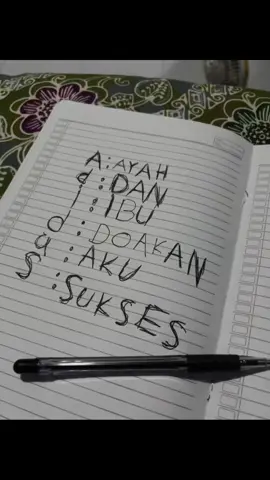 A : AYAH
d : DAN
i : IBU
d : DOAKAN
a : AKU
S : SUKSES